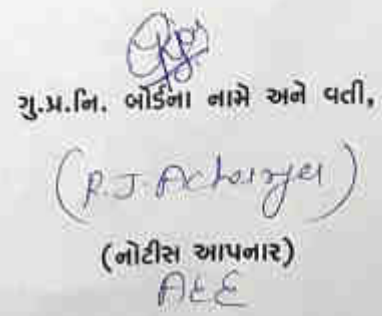 ગુ.પ્ર.નિ. બોર્ડના નામે અને વતી,
(R.J. Acharya)
(નોટીસ આપનાર)
AEE